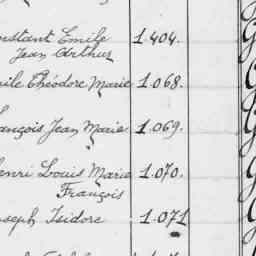 nstant Emile 1.404.
Jean Arthur
mile Théodore Marie 1.068.
ançois Jean Marie 1.069.
enri Louis Marie 1.070.
François
oseph Isidore 1.071